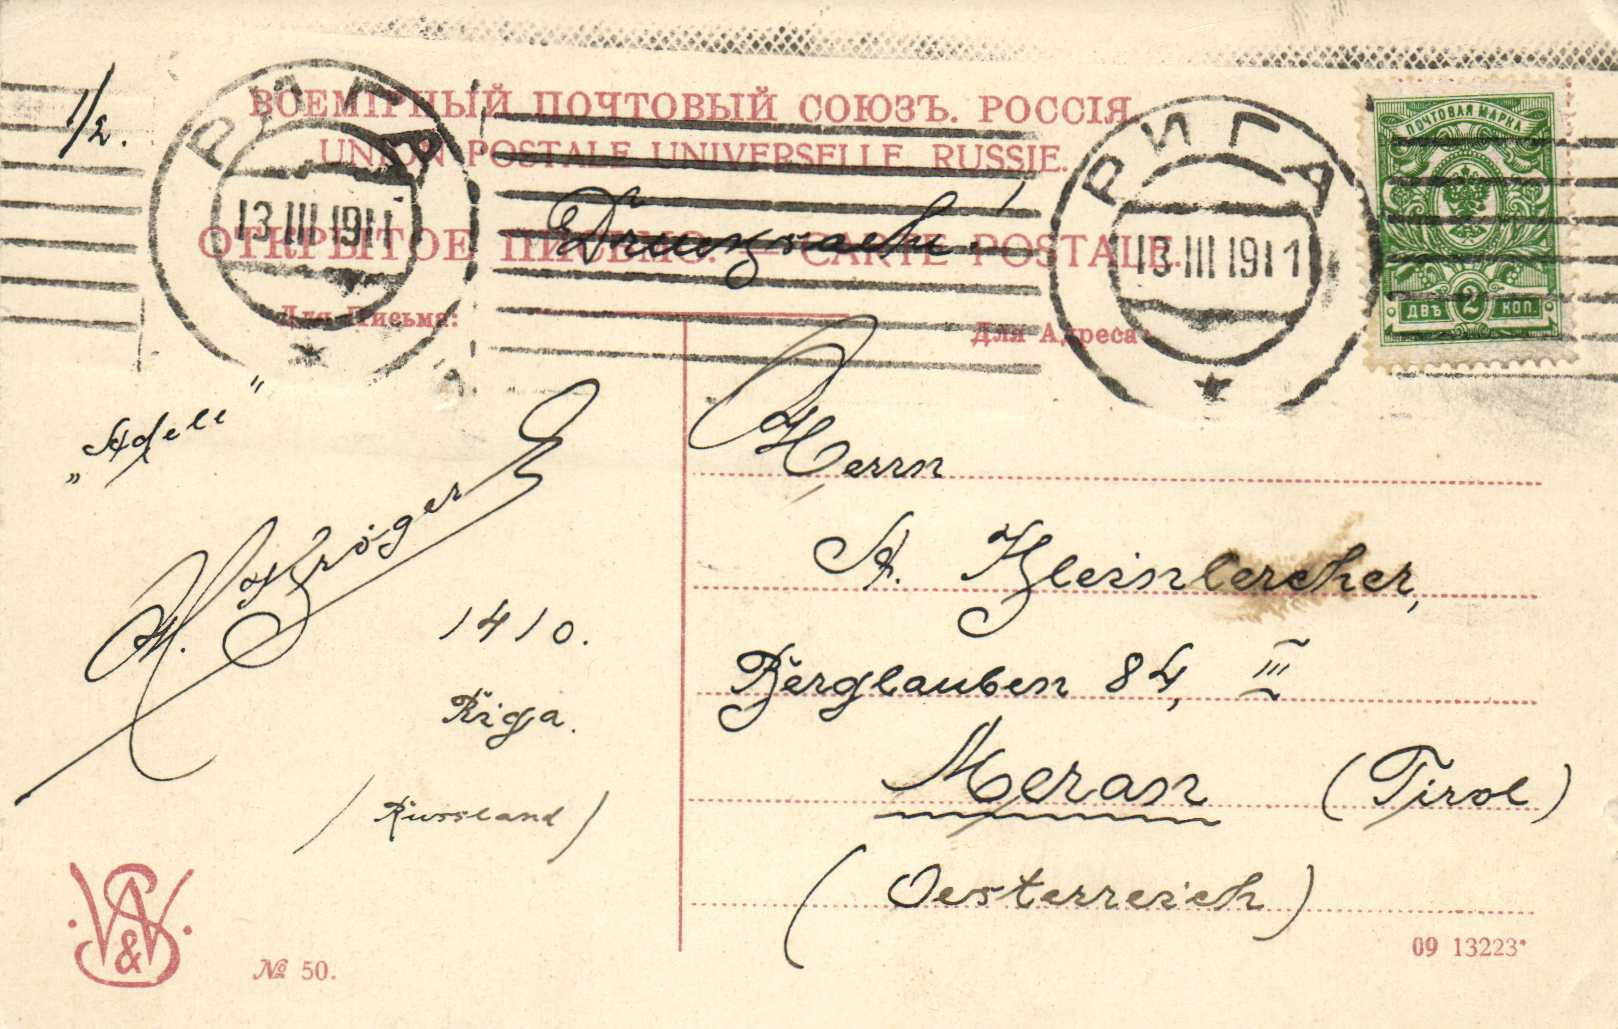 1/2.
ВСЕМІРНЫЙ ПОЧТОВЫЙ СОЮЗЪ. РОССІЯ.
UNION POSTALE UNIVERSELLE. RUSSIE.
ОТКРЫТОЕ ПИСЬМО. — CARTE POSTALE.
Drucksache!
РИГА
13 III 1911
РИГА
13 III 1911
ПОЧТОВАЯ МАРКА
ДВѢ 2 КОП.
Для Письма:
Для Адреса:
„Adell"
H. Kröger
1410.
Riga.
(Russland)
Herrn
A. Kleinlercher,
Berglauben 84, III
Meran (Tirol)
(Oesterreich)
№ 50.
09 13223*